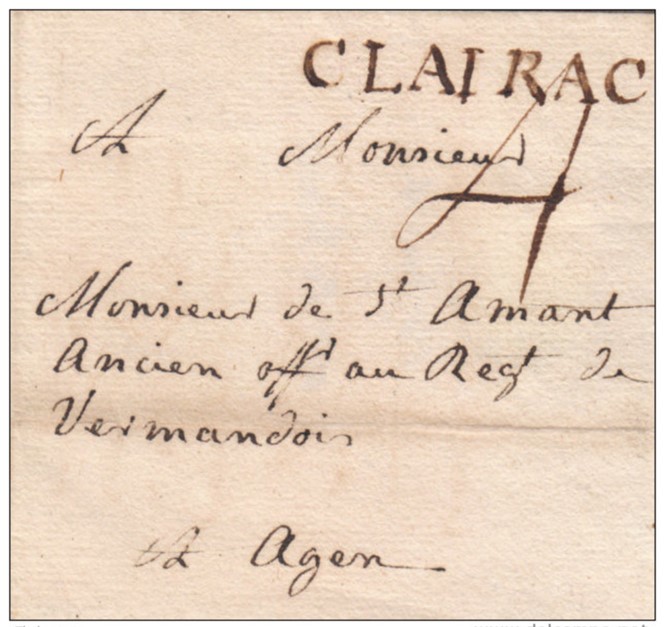 CLAIRAC
A Monsieur
4
Monsieur de St Amant
Ancien offr au Regt de
Vermandois
A Agen